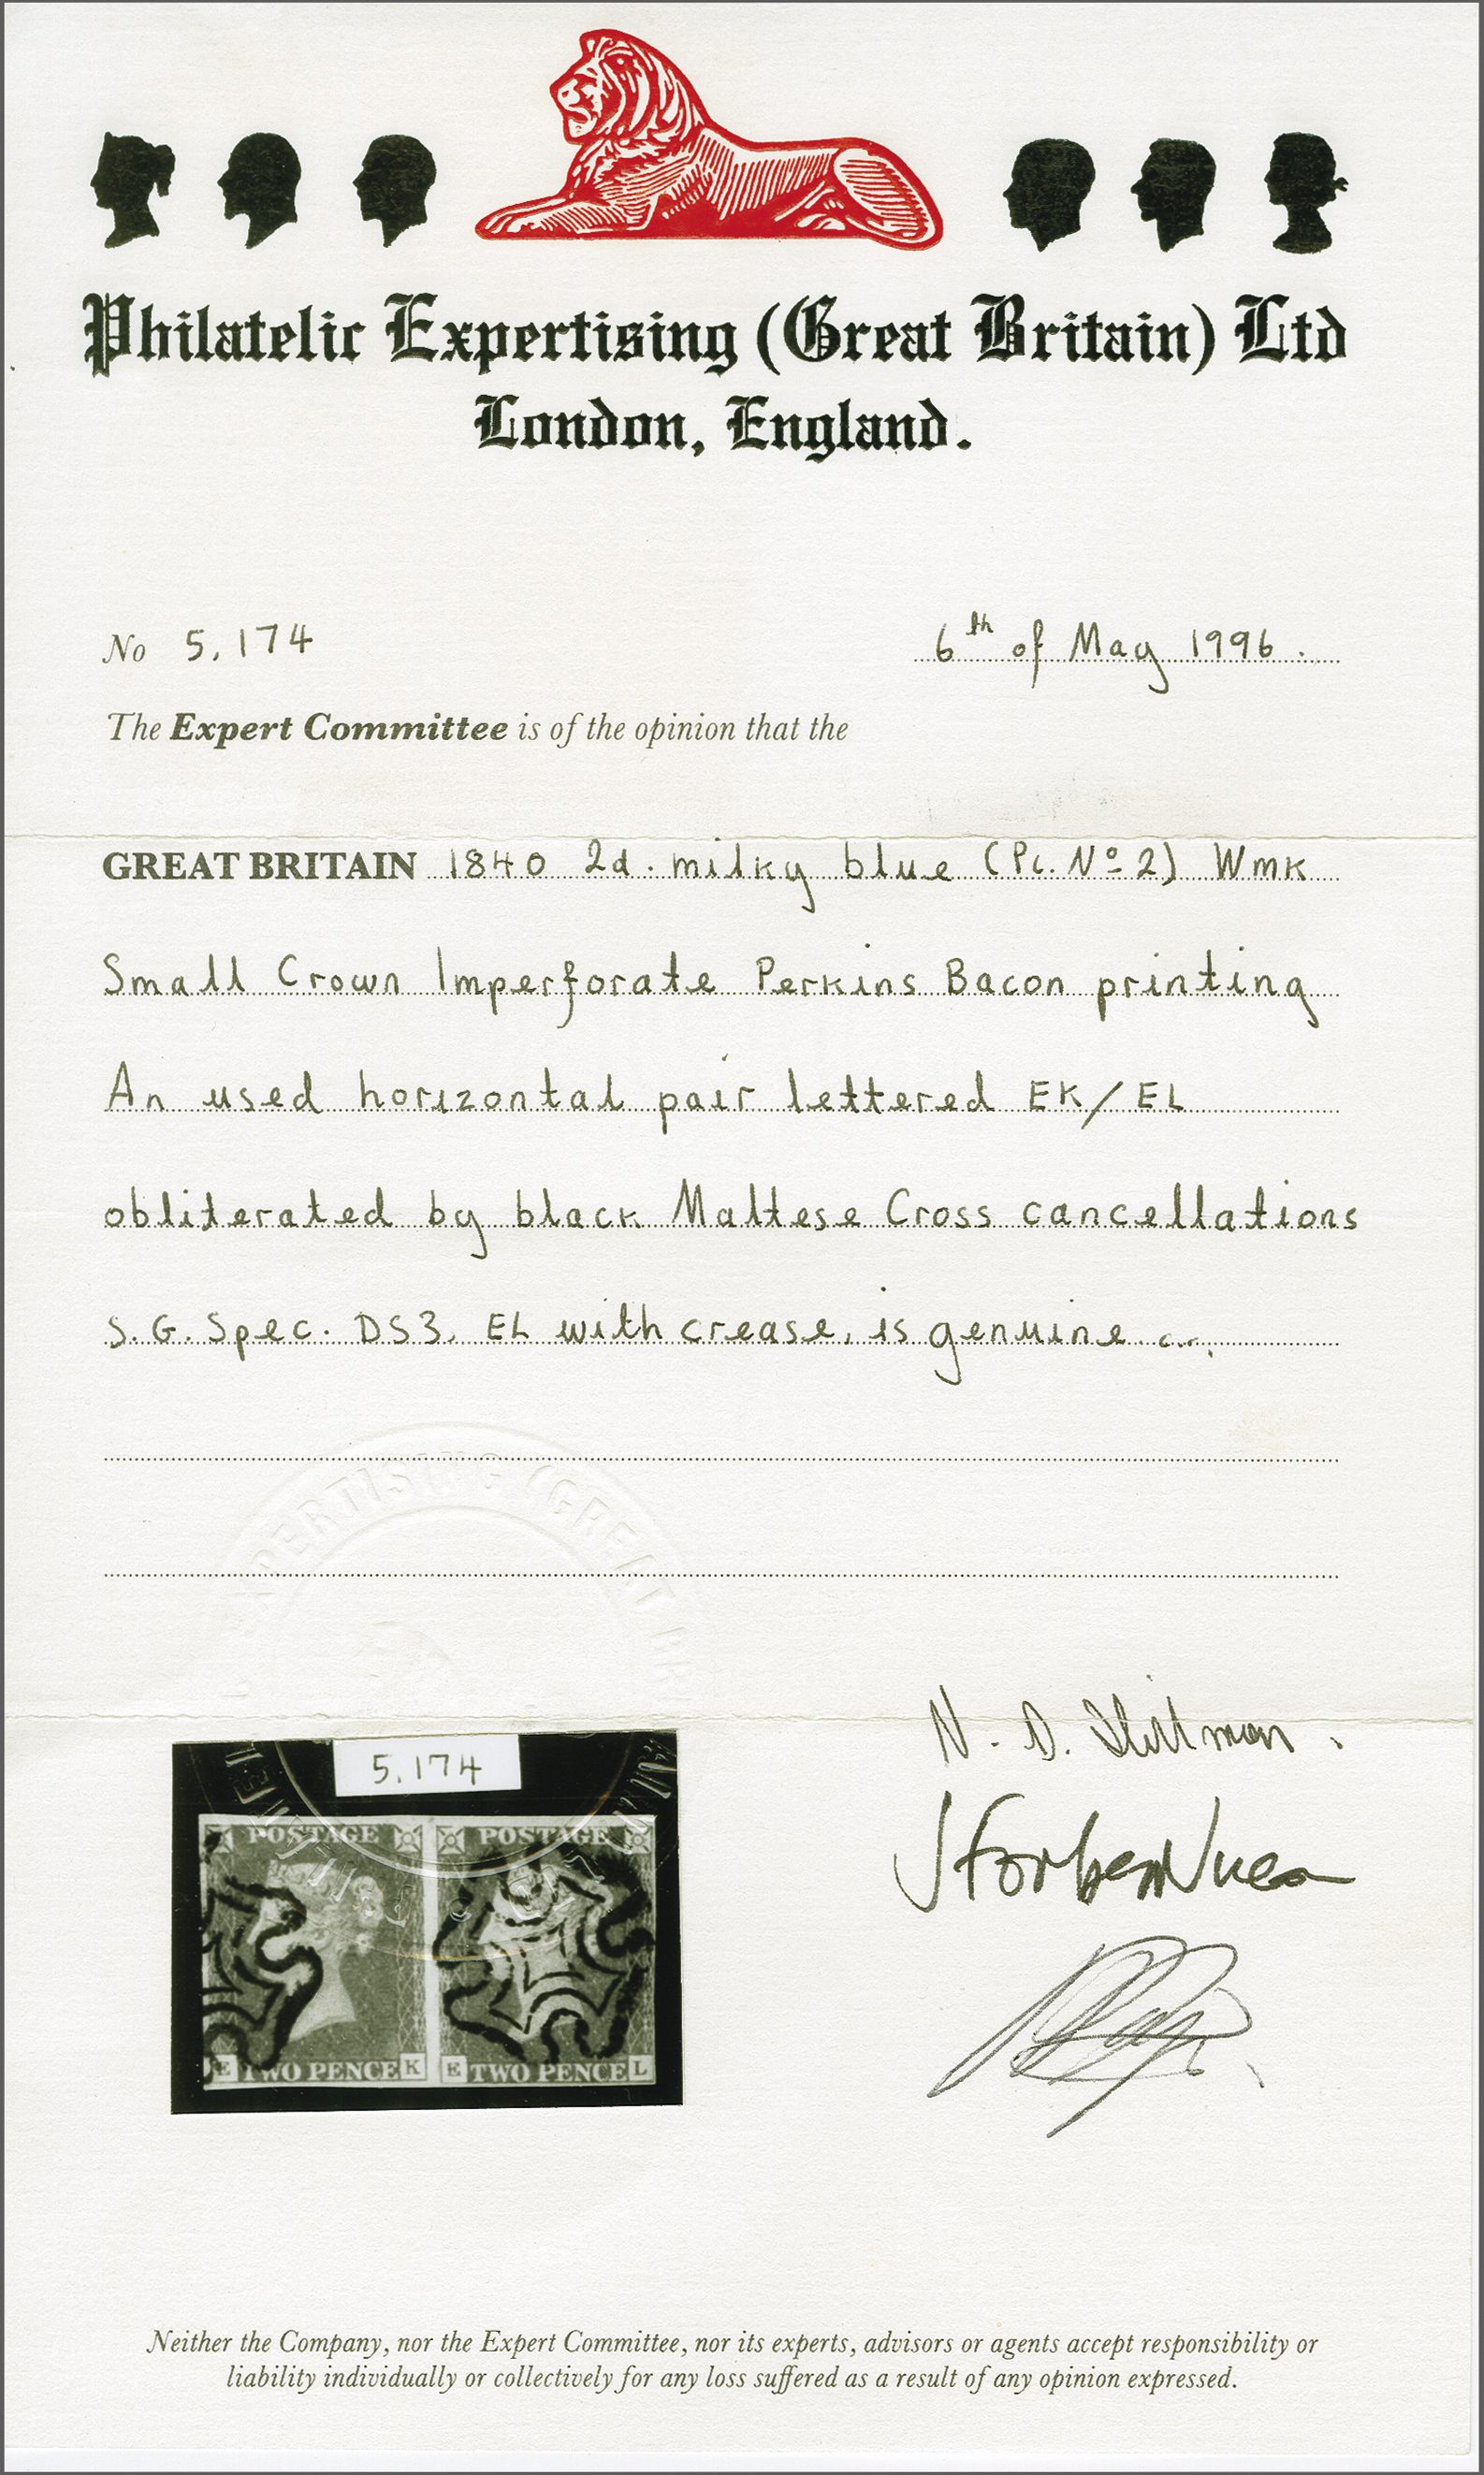 Philatelic Expertising (Great Britain) Ltd
London, England.
No 5,174
6th of May 1996.
The Expert Committee is of the opinion that the
GREAT BRITAIN 1840 2d. milky blue (Pl. Nº 2) Wmk
Small Crown Imperforate Perkins Bacon printing
An used horizontal pair lettered EK/EL
obliterated by black Maltese Cross cancellations
S.G. Spec. DS3, EL with crease, is genuine....
EXPERTISING (GREAT BR
N. D.
5,174
POSTAGE POSTAGE
E TWO PENCE K E TWO PENCE L
Neither the Company, nor the Expert Committee, nor its experts, advisors or agents accept responsibility or
liability individually or collectively for any loss suffered as a result of any opinion expressed.